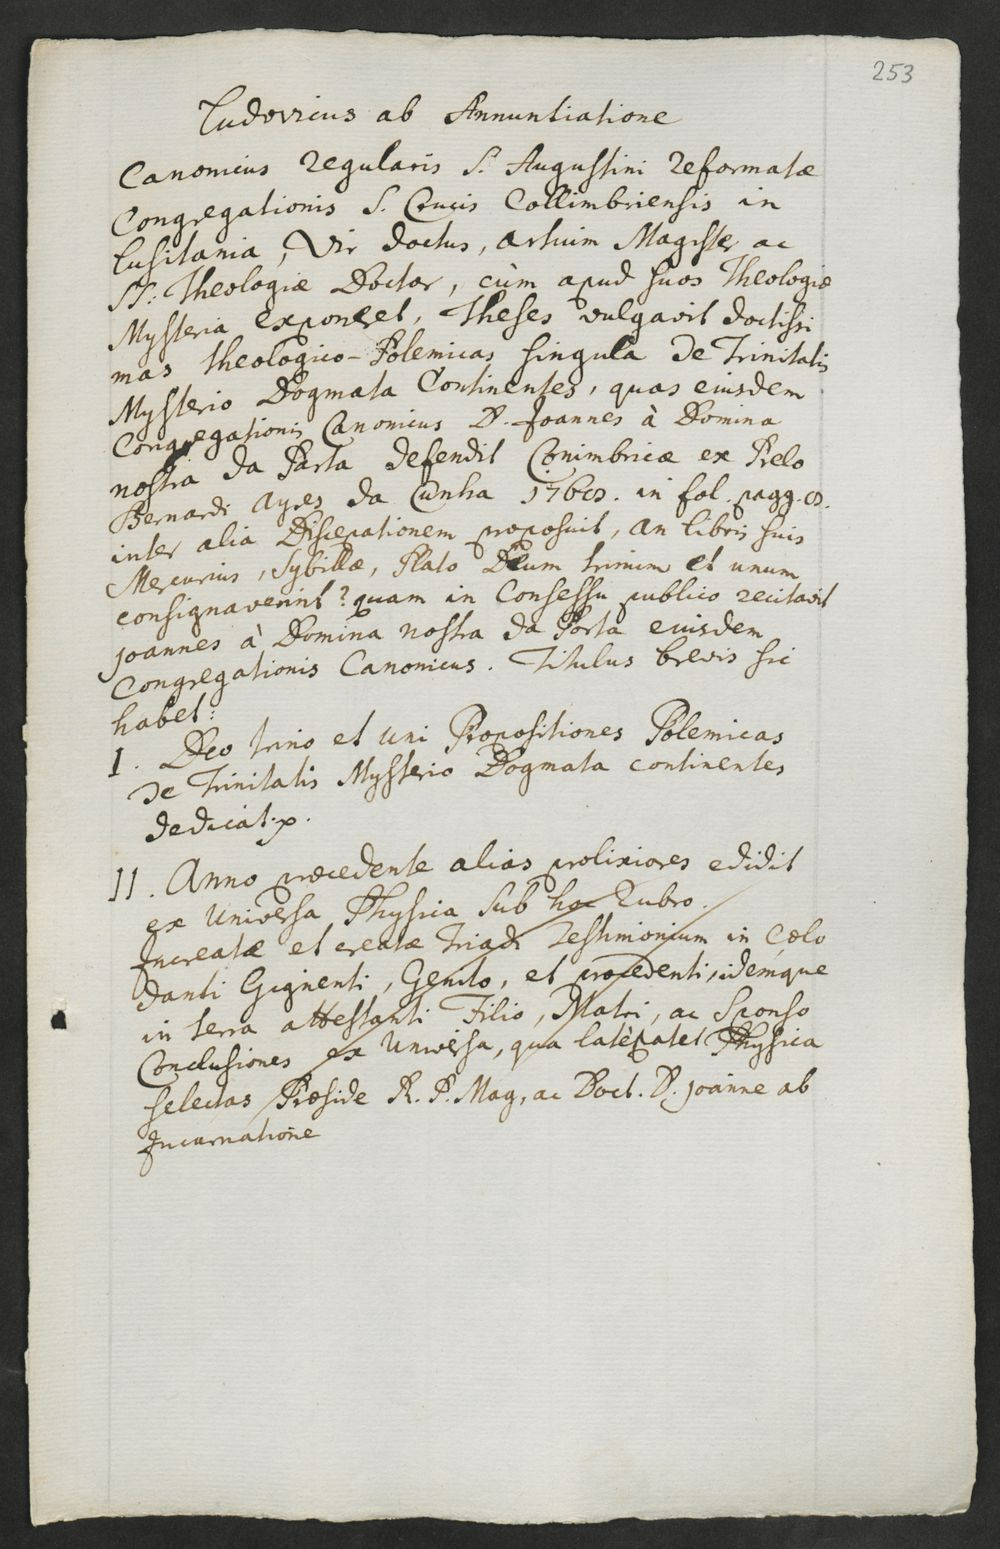 253
Ludovicus ab Annuntiatione
Canonicus regularis S. Augustini reformatæ
Congregationis S. Crucis Collimbriensis in
Lusitania, Vir doctus, artium Magister ac
SS: Theologiæ Doctor, cùm apud suos Theologiæ
Mysteria exponeret, Theses vulgavit doctissi
mas theologico-Polemicas singula de Trinitatis
Mysterio Dogmata Continentes, quas eiusdem
Congregationis Canonicus D. Joannes à Domina
nostra da Parta defendit Conimbricæ ex Prelo
Bernardi Ayres da Cunha in fol. pagg.
inter alia Disceptationem proposuit, an libris suis
Mercurius, Sybillæ, Plato Deum trinum et unum
consignaverint? quam in Consessu publico recitavit
Joannes à Domina nostra da Porta eiusdem
Congregationis Canonicus. Titulus brevis sic
habet:
I. Deo trino et uni Propositiones Polemicas
de Trinitatis Mysterio Dogmata continentes
dedicat.
II. Anno præcedente alias prolixiores edidit
ex Universa Physica sub hoc Rubro.
Increatæ et creatæ Triadi Testimonium in Cœlo
danti Gignenti, Genito, et procedenti, idemque
in terra attestanti Filio, Matri, ac Sponso
Conclusiones ex Universa, qua latè patet Physica
selectas Præside R. P. Mag. ac Doct. D. Joanne ab
Incarnatione